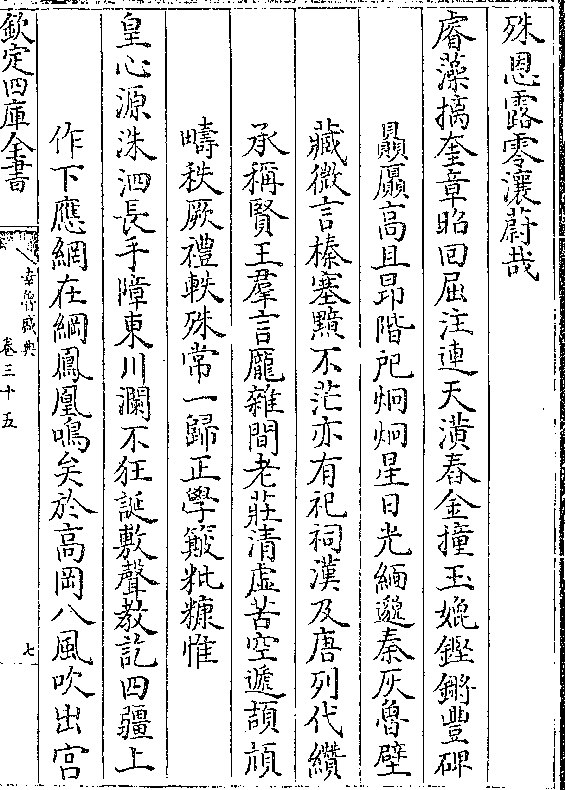 殊恩露零瀼蔚哉
睿藻摛奎章昭回屈注連天潢舂金撞玉媲鏗鏘豐碑
贔屭高且昻階戺炯炯星日光緬邈秦灰魯壁
藏微言榛塞黯不茫亦有祀祠漢及唐列代纘
承稱賢王羣言龎雜間老莊清虚苦空遞頡頏
疇秩厥禮軼殊常一歸正學簸粃糠惟
皇心源洙泗長手障東川瀾不狂誕敷聲教訖四疆上
作下應網在綱鳳凰鳴矣於高岡八風吹出宫
欽定四庫全書
幸魯盛典
卷三十五
七